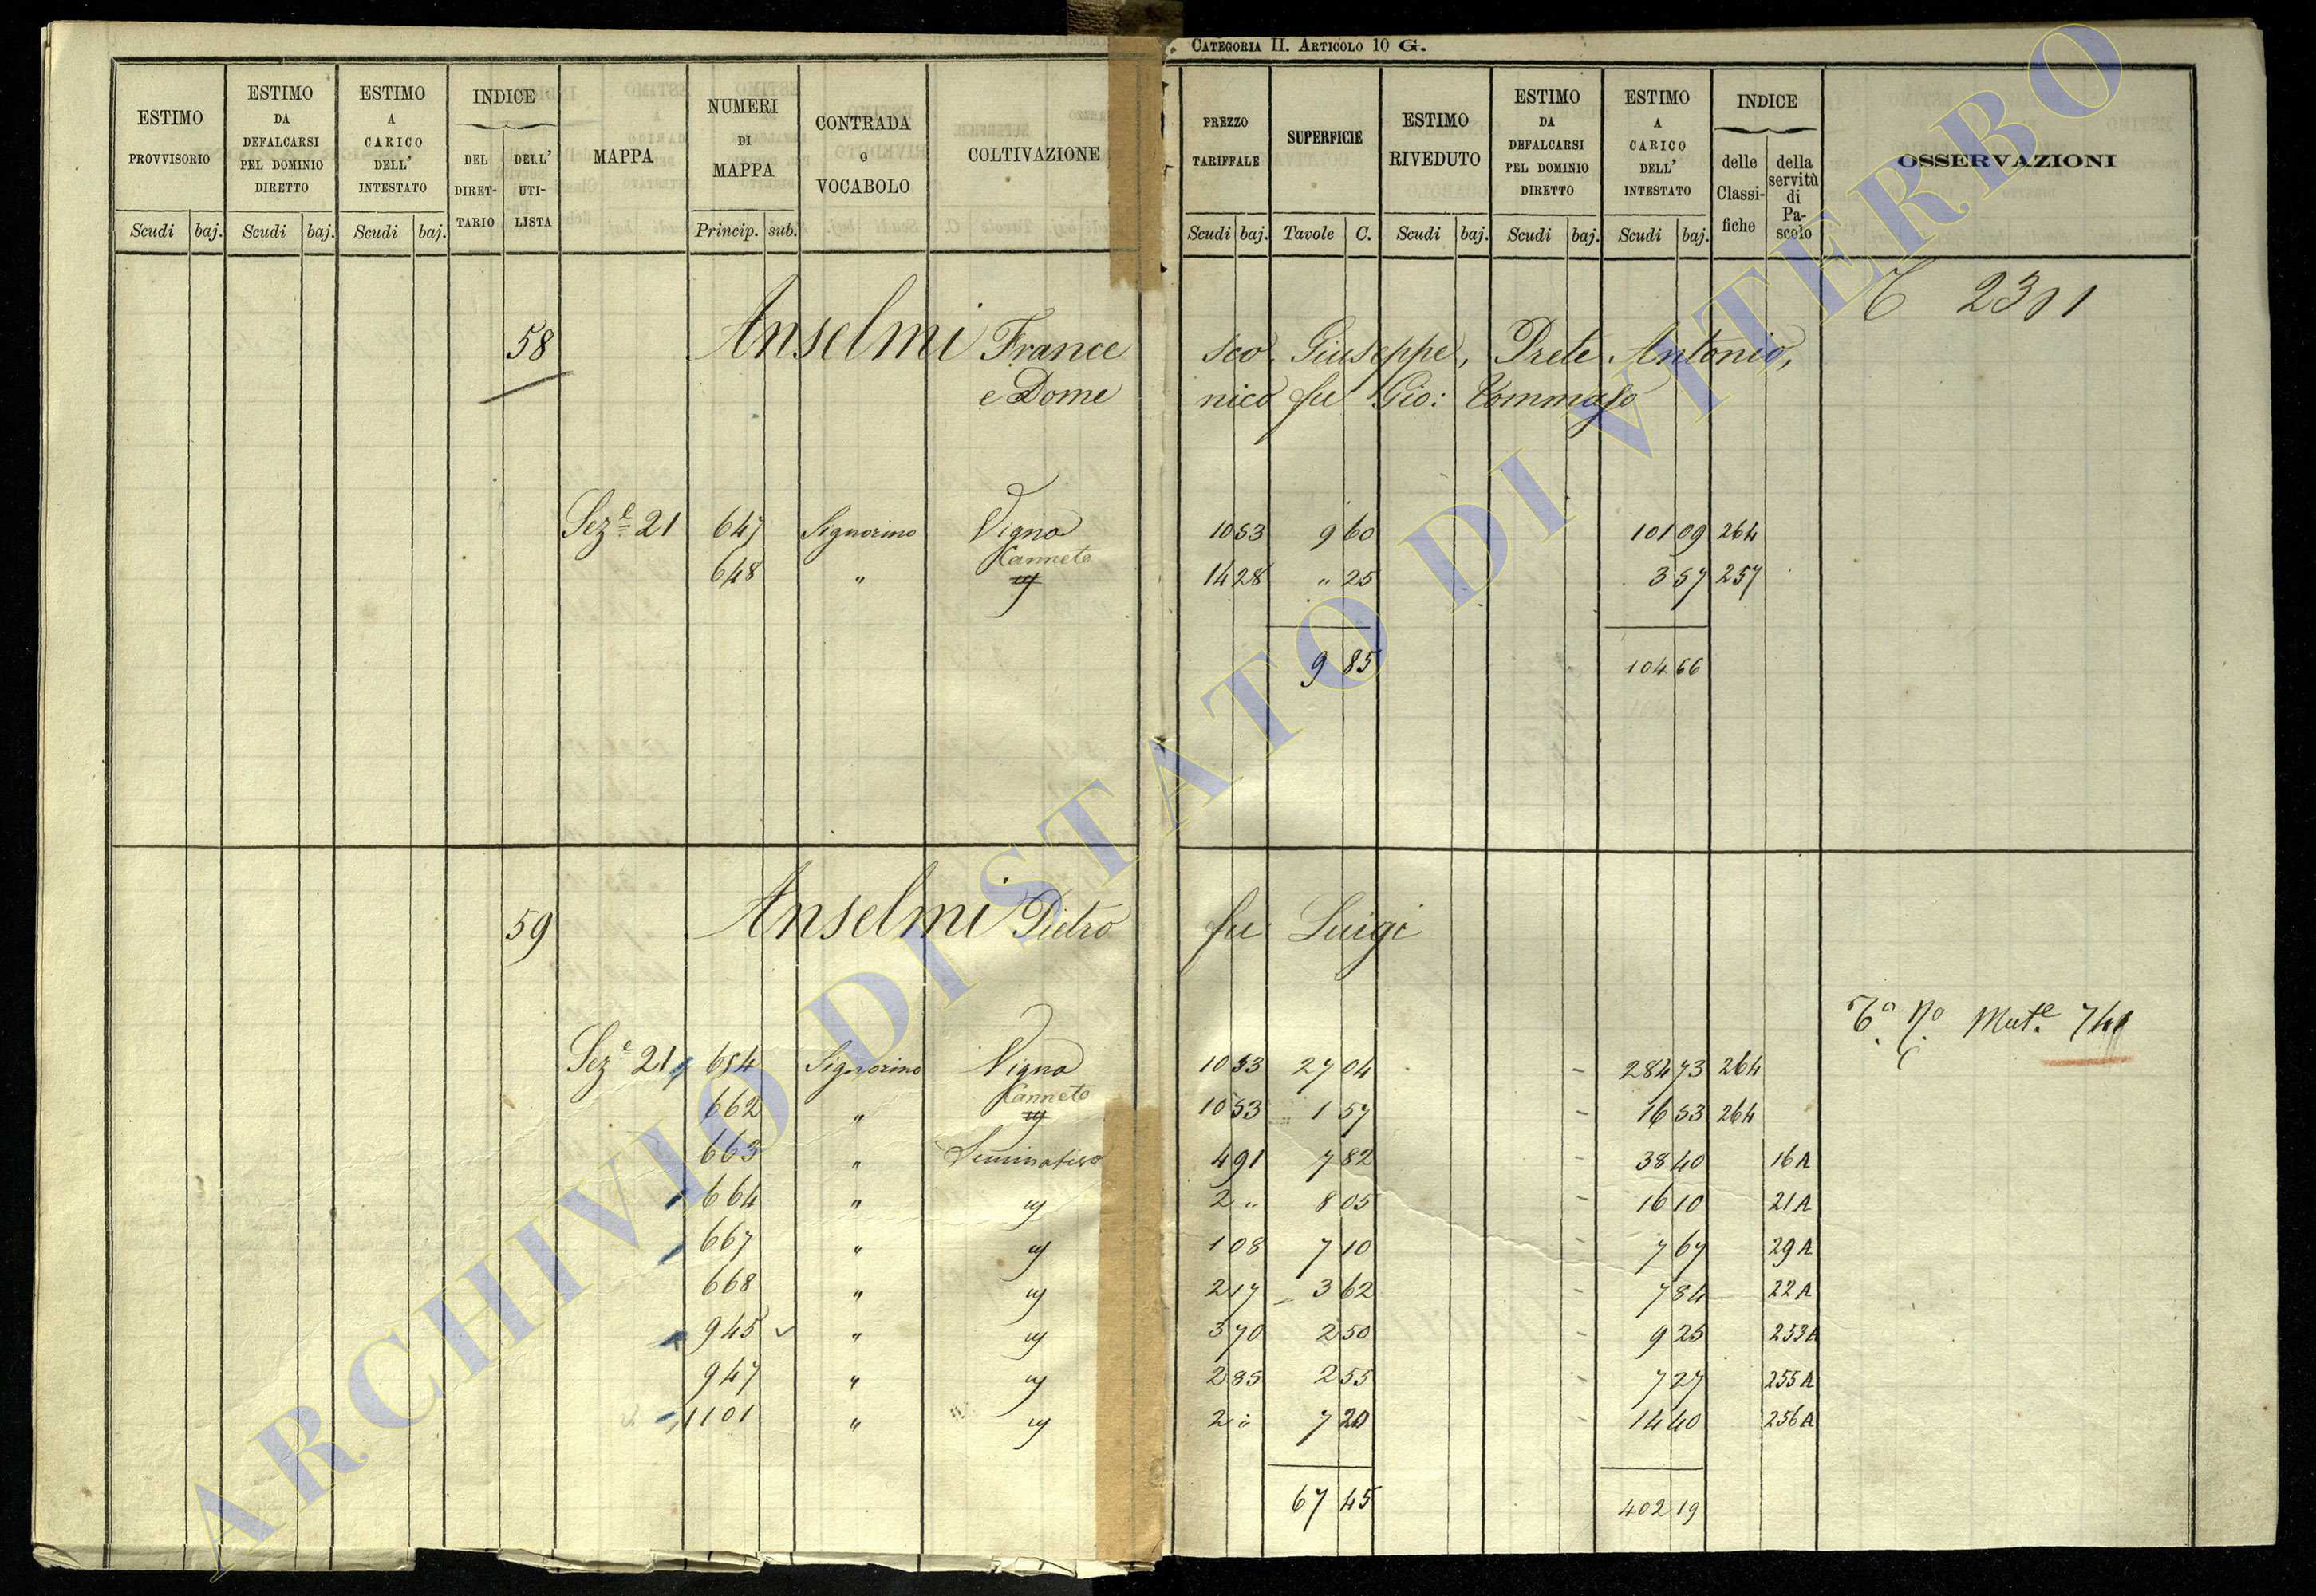 CATEGORIA II. ARTICOLO 10 G.
ESTIMO PROVVISORIO Scudi baj.
ESTIMO DA DEFALCARSI PEL DOMINIO DIRETTO Scudi baj.
ESTIMO A CARICO DELL' INTESTATO Scudi baj.
INDICE DEL DIRETTARIO DELL' UTILISTA
MAPPA
NUMERI DI MAPPA Princip. sub.
CONTRADA O VOCABOLO
COLTIVAZIONE
PREZZO TARIFFALE Scudi baj.
SUPERFICIE Tavole C.
ESTIMO RIVEDUTO Scudi baj.
ESTIMO DA DEFALCARSI PEL DOMINIO DIRETTO Scudi baj.
ESTIMO A CARICO DELL' INTESTATO Scudi baj.
INDICE delle Classifiche della servitù di Pascolo
OSSERVAZIONI
58 Anselmi Francesco, Giuseppe, Prete Antonio,
e Domenico fu Gio: Tommaso
Seze 21 647 Signorino Vigna 10 53 9 60 101 09 264
Canneto
648 " 14 28 " 25 3 57 257
9 85 104 66
59 Anselmi Pietro fu Luigi
Mute 741
Seze 21 654 Signorino Vigna 10 53 27 04 284 73 264
Canneto
662 " 10 53 1 57 - 16 53 264
663 " Seminativo 4 91 7 82 - 38 40 16A
664 " 2 " 8 05 - 16 10 21A
667 " 1 08 7 10 - 7 67 29A
668 " 2 17 3 62 - 7 84 22A
945 " 3 70 2 50 - 9 25 253A
947 " 2 85 2 55 - 7 27 255A
1101 " 2 " 7 20 - 14 40 256A
67 45 402 19
ARCHIVIO DI STATO DI VITERBO